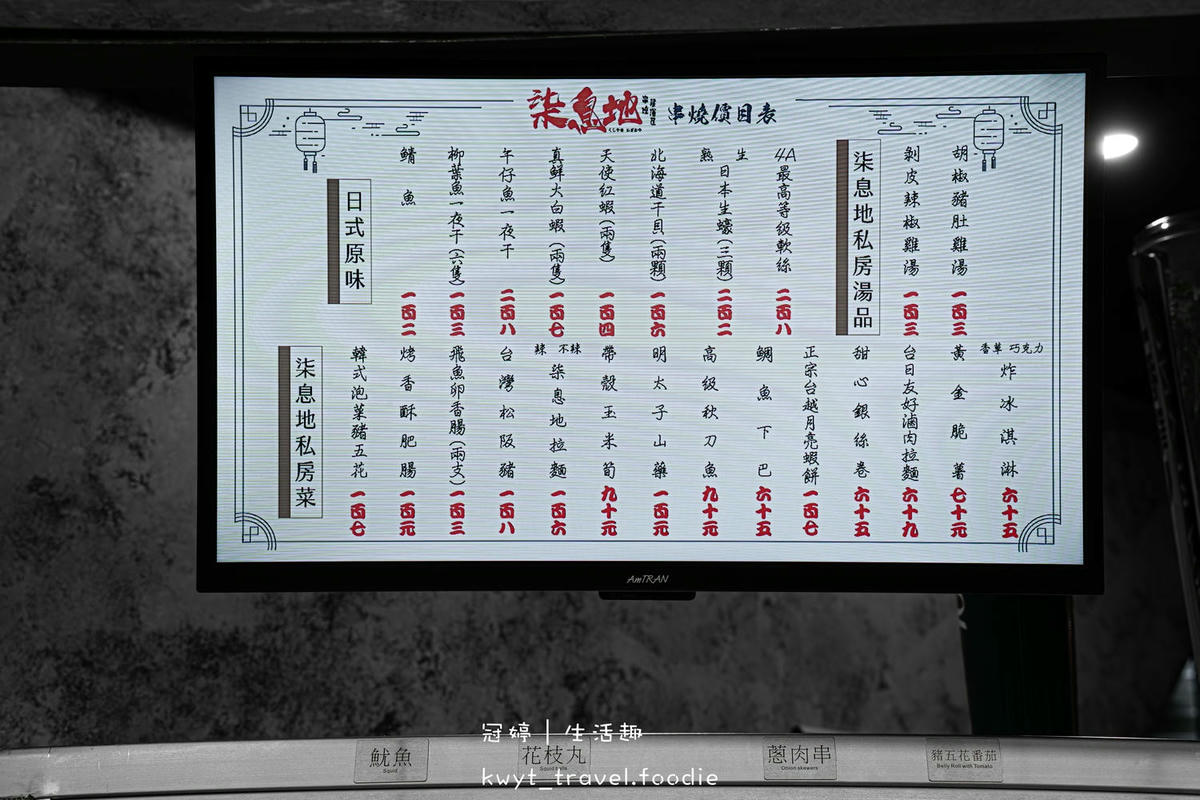 柒息地
串燒價目表
日式原味
鯖魚 一百二
柳葉魚一夜干(六隻) 一百三
午仔魚一夜干 二百八
真鮮大白蝦(兩隻) 一百七
天使紅蝦(兩隻) 一百四
北海道干貝(兩顆) 一百六
熟 生
日本生蠔(三顆) 二百二
4A最高等級軟絲 二百八
柒息地私房湯品
剝皮辣椒雞湯 一百三
胡椒豬肚雞湯 一百三
柒息地私房菜
韓式泡菜豬五花 一百七
烤香酥肥腸 一百元
飛魚卵香腸(兩支) 一百三
台灣松阪豬 一百八
辣 不辣
柒息地拉麵 一百六
帶殼玉米筍 九十元
明太子山藥 一百元
高級秋刀魚 九十元
鯛魚下巴 六十五
正宗台越月亮蝦餅 一百七
甜心銀絲卷 六十五
台日友好滷肉拉麵 六十九
黃金脆薯 七十元
香草 巧克力
炸冰淇淋 六十五
AmTRAN
冠婷｜生活趣
魷魚
Squid
花枝丸
蔥肉串
Onion skewers
豬五花番茄
Belly Roll with Tomato
kwyt_travel.foodie